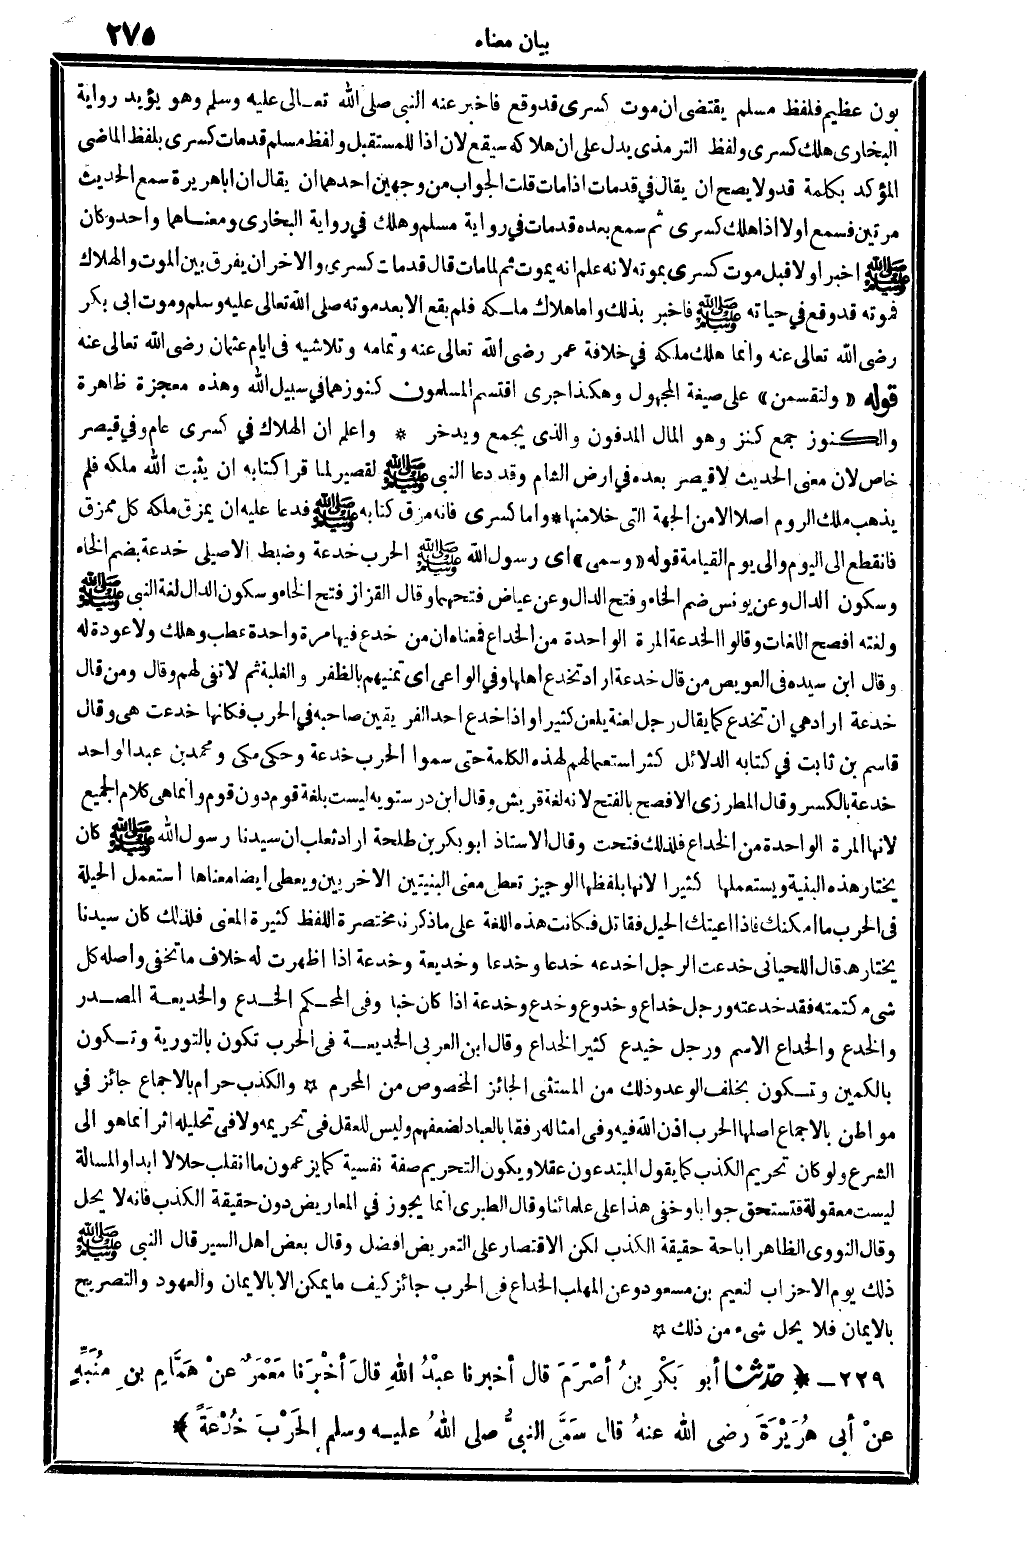 بيان معناه ٢٧٥
بون عظيم فلفظ مسلم يقتضى ان موت كسرى قد وقع فاخبر عنه النبى صلى الله تعـالى عليه وسلم وهو يؤيد رواية
البخارى هلك كسرى ولفظ الترمذى يدل على ان هلاكه سيقع لان اذا للمستقبل ولفظ مسلم قدمات كسرى بلفظ الماضى
المؤكد بكلمة قد ولا يصح ان يقال فى قدمات اذا مات قلت الجواب من وجهين احدهما ان يقال ان اباهريرة سمع الحديث
مرتين فسمع اولا اذا هلك كسرى ثم سمع بعده قدمات فى رواية مسلم وهلك فى رواية البخارى ومعنـاهما واحد وكان
ﷺ اخبر اولا قبل موت كسرى بموته لانه علم انه يموت ثم لما مات قال قدمات كسرى والآخر ان يفرق بين الموت والهلاك
فموته قد وقع فى حياته ﷺ فاخبر بذلك واما هلاك ملـكه فلم يقع الا بعد موته صلى الله تعالى عليه وسلم وموت ابى بكر
رضى الله تعالى عنه وانما هلك ملكه فى خلافة عمر رضى الله تعالى عنه وتمامه وتلاشيه فى ايام عثمان رضى الله تعالى عنه
قوله «ولتقسمن» على صيغة المجهول وهكذا جرى اقتسم المسلمون كنوزهما فى سبيل الله وهذه معجزة ظاهرة
والكنوز جمع كنز وهو المال المدفون والذى يجمع ويدخر * واعلم ان الهلاك فى كسرى عام وفى قيصر
خاص لان معنى الحديث لا قيصر بعده فى ارض الشام وقد دعا النبى ﷺ لقصير لما قرا كتابه ان يثبت الله ملكه فلم
يذهب ملك الروم اصلا الا من الجهة التى خلا منها * واما كسرى فانه مزق كتابه ﷺ فدعا عليه ان يمزق ملكه كل ممزق
فانقطع الى اليوم والى يوم القيامة قوله «وسمى» اى رسول الله ﷺ الحرب خدعة وضبط الاصيلى خدعة بضم الخاء
وسكون الدال وعن يونس ضم الخاء وفتح الدال وعن عياض فتحهما وقال القزاز فتح الخاء وسكون الدال لغة النبى ﷺ
ولغته افصح اللغات وقالوا الخدعة المرة الواحدة من الخداع فمعناه ان من خدع فيها مرة واحدة عطب وهلك ولا عودة له
وقال ابن سيده فى العويص من قال خدعة اراد تخدع اهلها وفى الواعى اى تمنيهم بالظفر والغلبة ثم لا تفى لهم وقال ومن قال
خدعة اراد هى ان تخدع كما يقال رجل لعنة يلعن كثيرا واذا خدع احد الفريقين صاحبه فى الحرب فكانها خدعت هى وقال
قاسم بن ثابت فى كتابه الدلائل كثر استعمالهم لهذه الكلمة حتى سموا الحرب خدعة وحكى مكى ومحمد بن عبد الواحد
خدعة بالكسر وقال المطرزى الافصح بالفتح لانه لغة قريش وقال ابن درستويه ليست بلغة قوم دون قوم وانما هى كلام الجميع
لانها المرة الواحدة من الخداع فلذلك فتحت وقال الاستاذ ابو بكر بن طلحة اراد ثعلب ان سيدنا رسول الله ﷺ كان
يختار هذه البنية ويستعملها كثيرا لانها بلفظها الوجيز تعطى معنى البنيتين الاخريين ويعطى ايضا معناها استعمل الحيلة
فى الحرب ما امكنك فاذا اعيتك الحيل فقاتل فكانت هذه اللغة على ما ذكرنا مختصرة اللفظ كثيرة المعنى فلذلك كان سيدنا
يختارها قال اللحيانى خدعت الرجل اخدعه خدعا وخدعا وخديعة وخدعة اذا اظهرت له خلاف ما تخفى واصله كل
شىء كتمته فقد خدعته ورجل خداع وخدوع وخدع وخدعة اذا كان خبا وفى المحكم الخـدع والخديعـة المصـدر
والخدع والخداع الاسم ورجل خيدع كثير الخداع وقال ابن العربى الخديعـة فى الحرب تكون بالتورية وتـكون
بالكمين وتـكون بخلف الوعد وذلك من المستثنى الجائز المخصوص من المحرم * والكذب حرام بالاجماع جائز فى
مواطن بالاجماع اصلها الحرب اذن الله فيه وفى امثاله رفقا بالعباد لضعفهم وليس للعقل فى تحريمه ولا فى تحليله اثر انما هو الى
الشرع ولو كان تحريم الكذب كما يقول المبتدعون عقلا ويكون التحريم صفة نفسية كما يزعمون ما انقلب حلالا ابدا والمسالة
ليست معقولة فتستحق جوابا وخفى هذا على علمائنا وقال الطبرى انما يجوز فى المعاريض دون حقيقة الكذب فانه لا يحل
وقال النووى الظاهر اباحة حقيقة الكذب لكن الاقتصار على التعريض افضل وقال بعض اهل السير قال النبى ﷺ
ذلك يوم الاحزاب لنعيم بن مسعود وعن المهلب الخداع فى الحرب جائز كيف ما يمكن الا بالايمان والعهود والتصريح
بالايمان فلا يحل شىء من ذلك *
٢٢٩ – ﴿ حَدَّثنا أبو بَكْرِ بنُ أصْرَمَ قال أخبرنا عبْدُ اللهِ قالَ أخْبَرَنا مَعْمَرٌ عنْ هَمَّامِ بنِ مُنَبِّهٍ
عنْ أبى هُرَيْرَةَ رضى اللهُ عنهُ قال سَمَّى النبىُّ صلى اللهُ عليـه وسلم الحَرْبَ خُدْعَةً ﴾